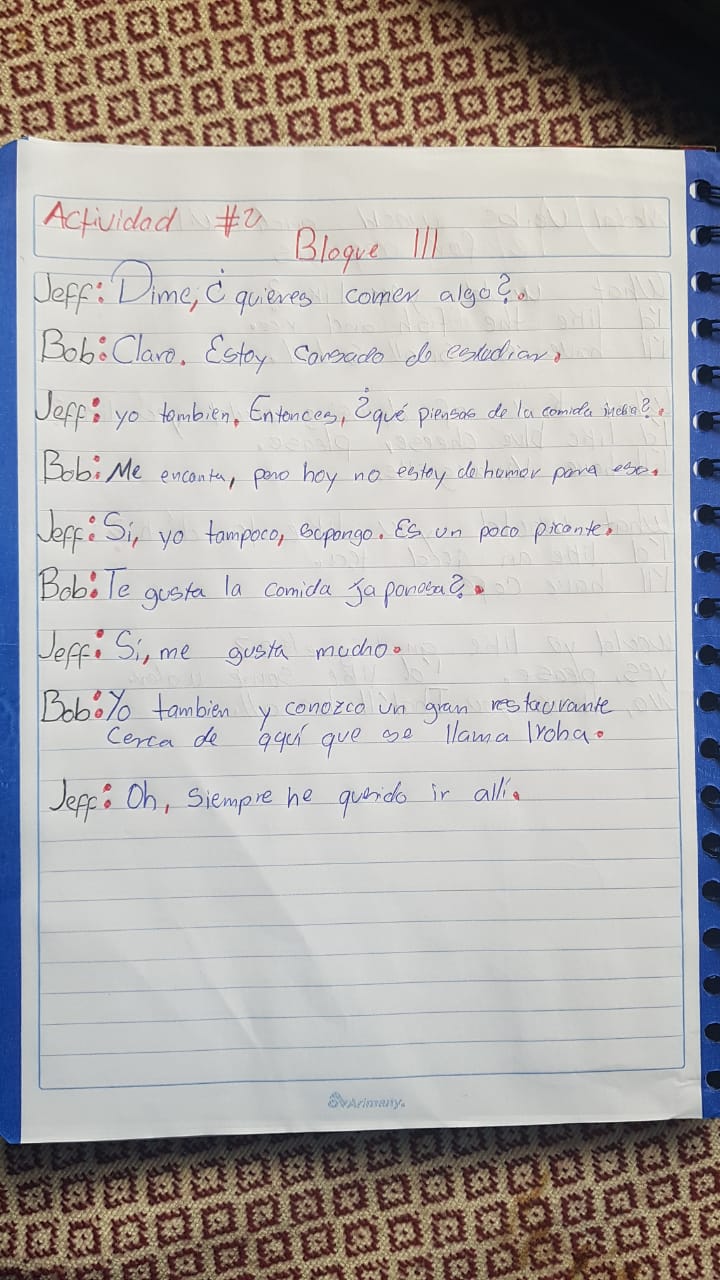 Actividad #2
Bloque III
Jeff: Dime, ¿quieres comer algo?.
Bob: Claro. Estoy Cansado de estudiar.
Jeff: yo tambien. Entonces, ¿qué piensas de la comida india?.
Bob: Me encanta, pero hoy no estoy de humor para eso.
Jeff: Sí, yo tampoco, supongo. Es un poco picante.
Bob: Te gusta la comida japonesa?.
Jeff: Si, me gusta mucho.
Bob: Yo tambien y conozco un gran restaurante
Cerca de aquí que se llama Iroha.
Jeff: Oh, Siempre he querido ir allí.
Arimany